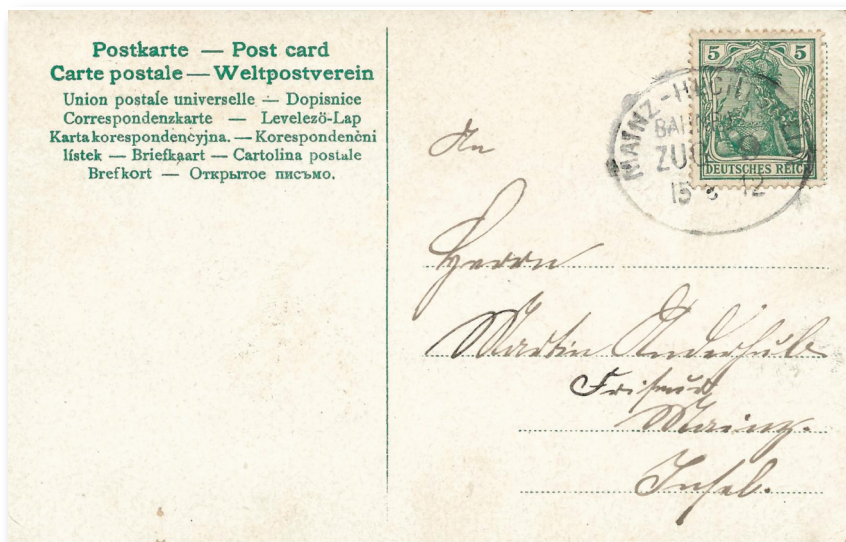 Postkarte — Post card
Carte postale — Weltpostverein
Union postale universelle — Dopisnice
Correspondenzkarte — Levelező-Lap
Karta korespondencyjna. — Korespondenční
lístek — Briefkaart — Cartolina postale
Brefkort — Открытое письмо.
5 5
DEUTSCHES REICH
MAINZ
ZUG
15 12
An
Herrn
Martin Anderhub
Friseur
Mainz.
Insel.